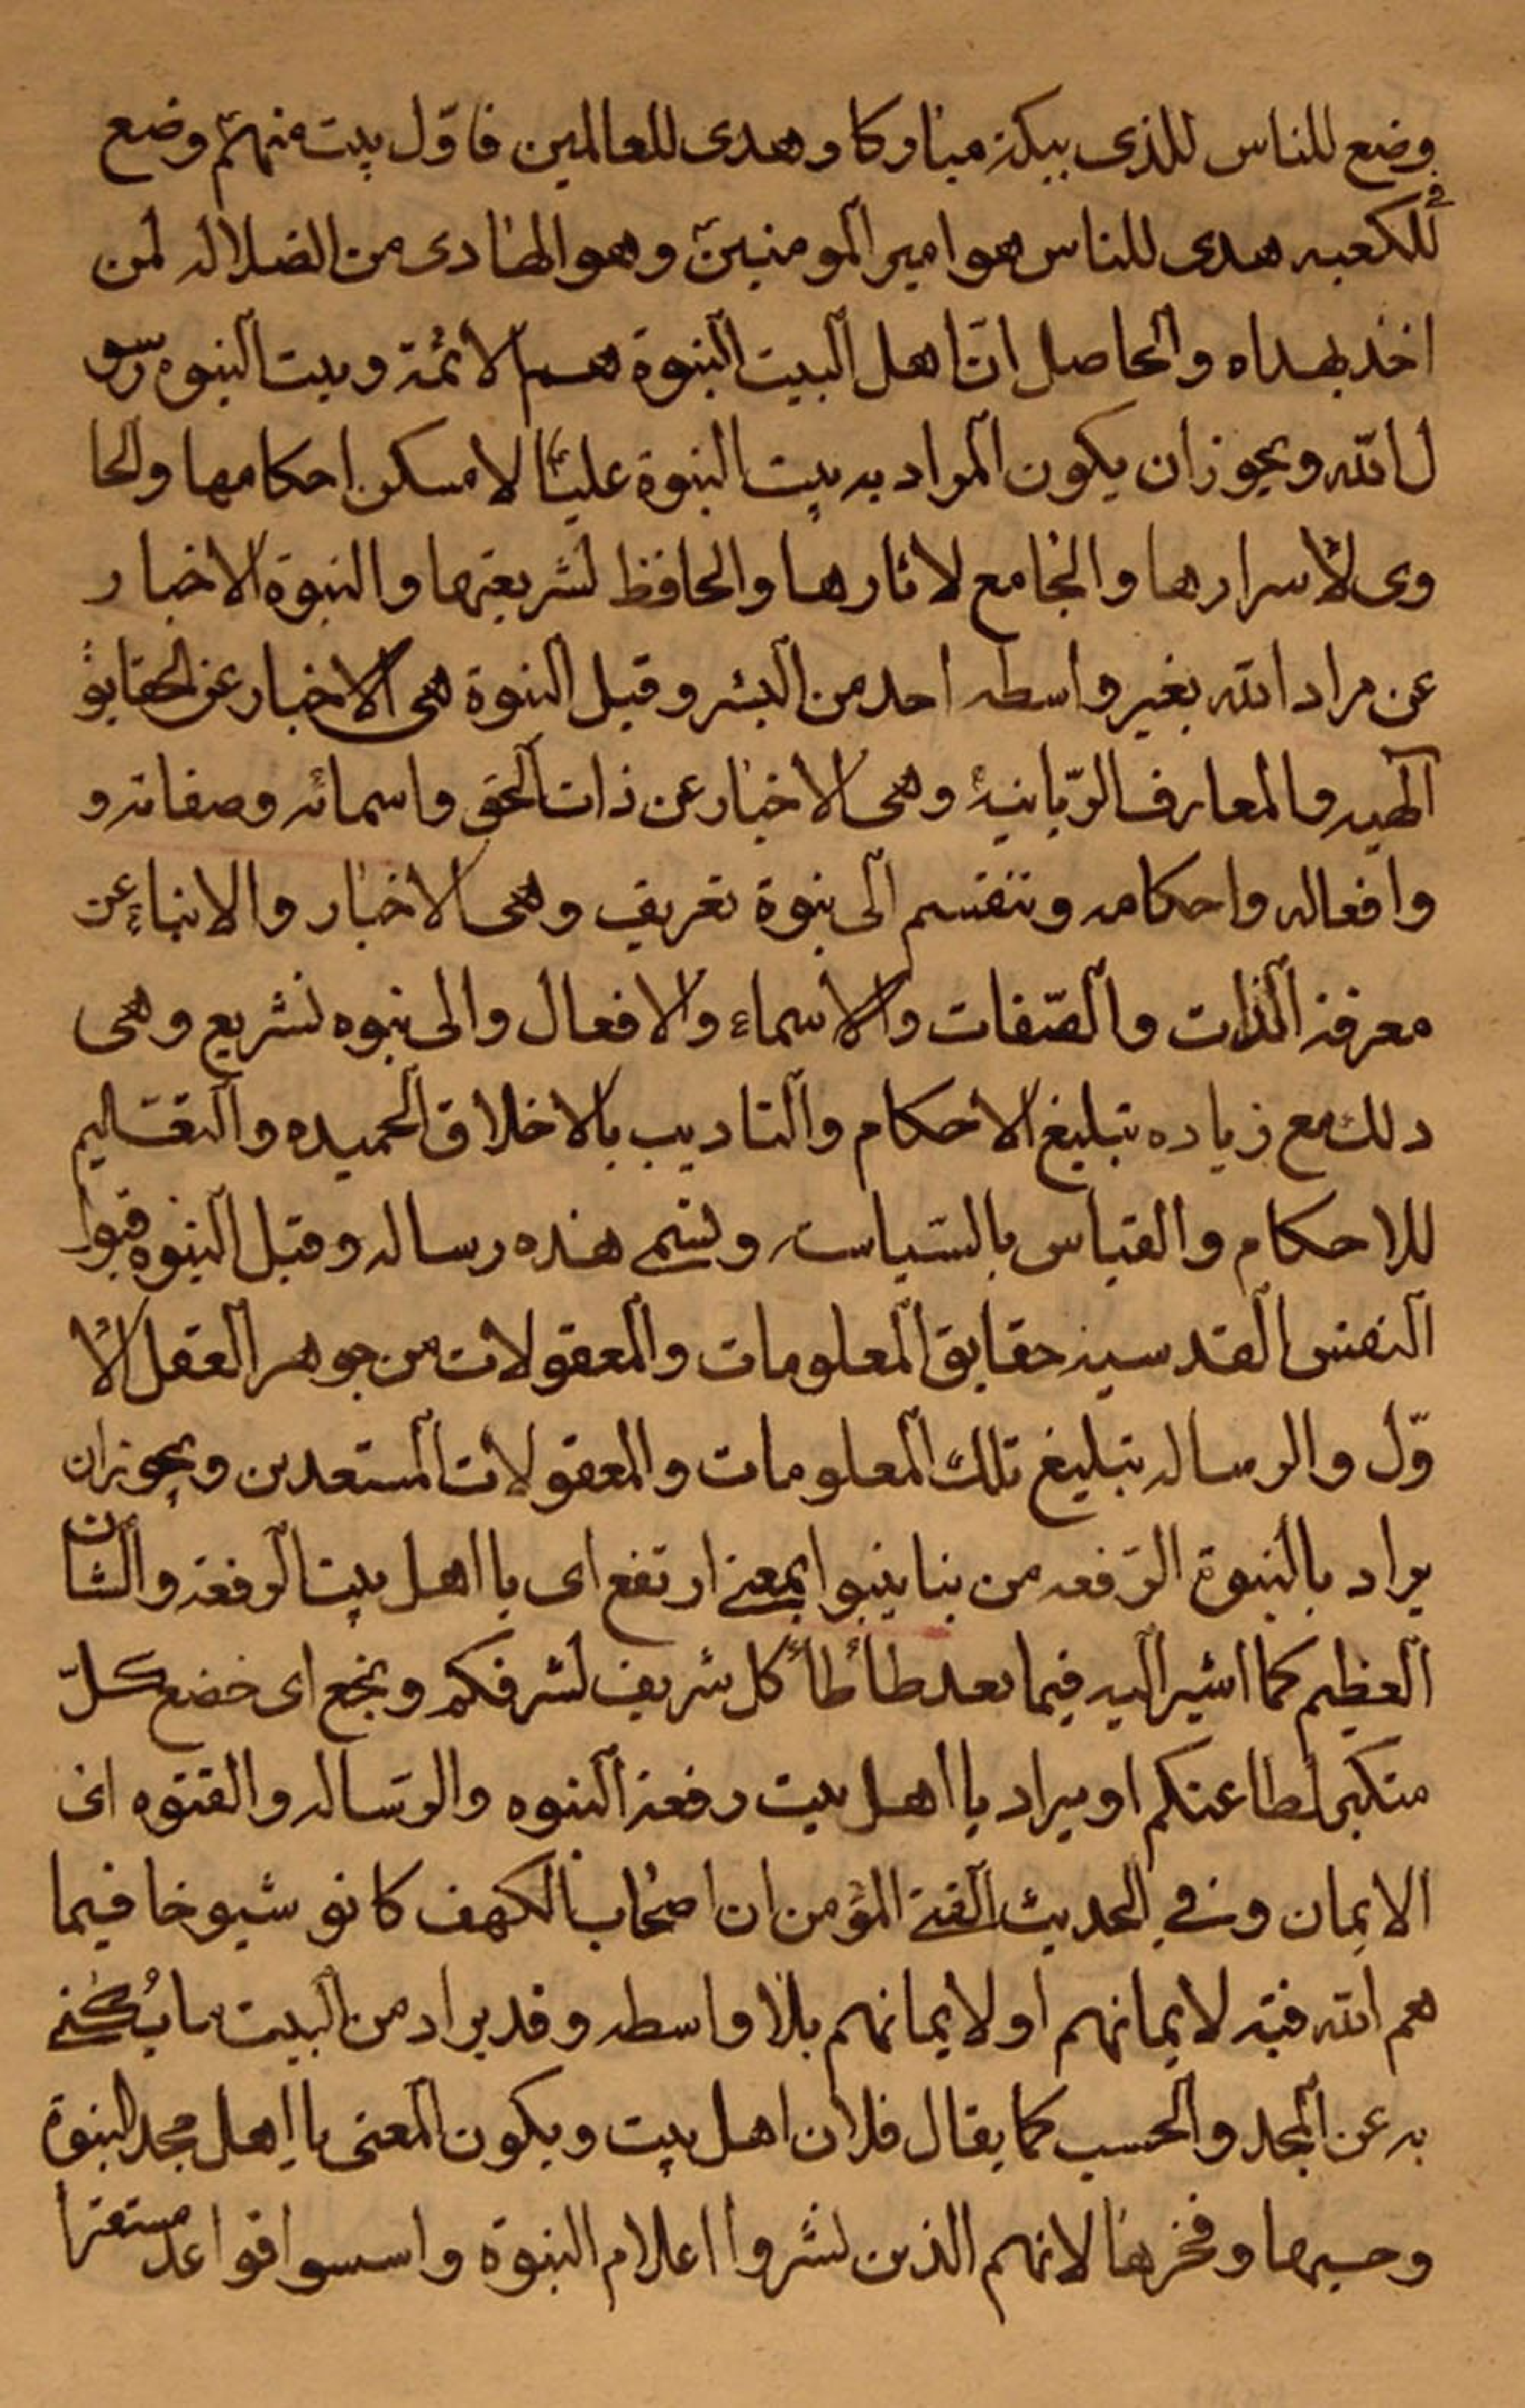 وضع للناس للذى ببكة مباركا وهدى للعالمين فاوّل بيت منهم وضع
فى الكعبه هدى للناس هو امير المومنين وهو الهادى من الضلاله لمن
اخذ بهداه والحاصل انّ اهل البيت النبوة هم الائمة وبيت النبوه رسو
ل الله ويجوز ان يكون المراد به بيت النبوة عليّا لا مسكن احكامها والحا
وى لاسرارها والجامع لاثارها والحافظ لشريعتها والنبوة الاخبار
عن مراد الله بغير واسطه احد من البشر وقيل النبوة هى الاخبار عن الحقايق
الهيه والمعارف الرّبانية وهى الاخبار عن ذات الحق واسمائه وصفاته و
وافعاله واحكامه وتنقسم الى نبوة تعريف وهى الاخبار والانباء عن
معرفة الذات والصّفات والاسماء والافعال والى نبوه تشريع وهى
دلك مع زياده تبليغ الاحكام والتاديب بالاخلاق الحميده والتعليم
للاحكام والقياس بالسّياسة وتسمى هذه رساله وقيل النبوه قبول
النفس القدسية حقايق المعلومات والمعقولات من جوهر العقل الا
وّل والرساله تبليغ تلك المعلومات والمعقولات المستعدين ويجوز ان
يراد بالنبوة الرّفعه من نبا ينبوا بمعنى ارتفع اى يا اهل بيت الرفعة والشان
العظيم كما اشير اليه فيما بعد طأطأ كل شريف لشرفكم وبخع اى خضع كلّ
متكبر لطاعتكم او يراد يا اهل بيت رفعة النبوه والرّساله والفتوه اى
الايمان وفى الحديث الفتى المؤمن ان اصحاب الكهف كانو شيوخا فسما
هم الله فتيه لايمانهم او لايمانهم بلا واسطه وقد يراد من البيت ما يُكنى
به عن المجد والحسب كما يقال فلان اهل بيت ويكون المعنى يا اهل مجد النبوة
وحسبها وفخرها لانهم الذين نشروا اعلام النبوة واسسوا قواعد مستقرا